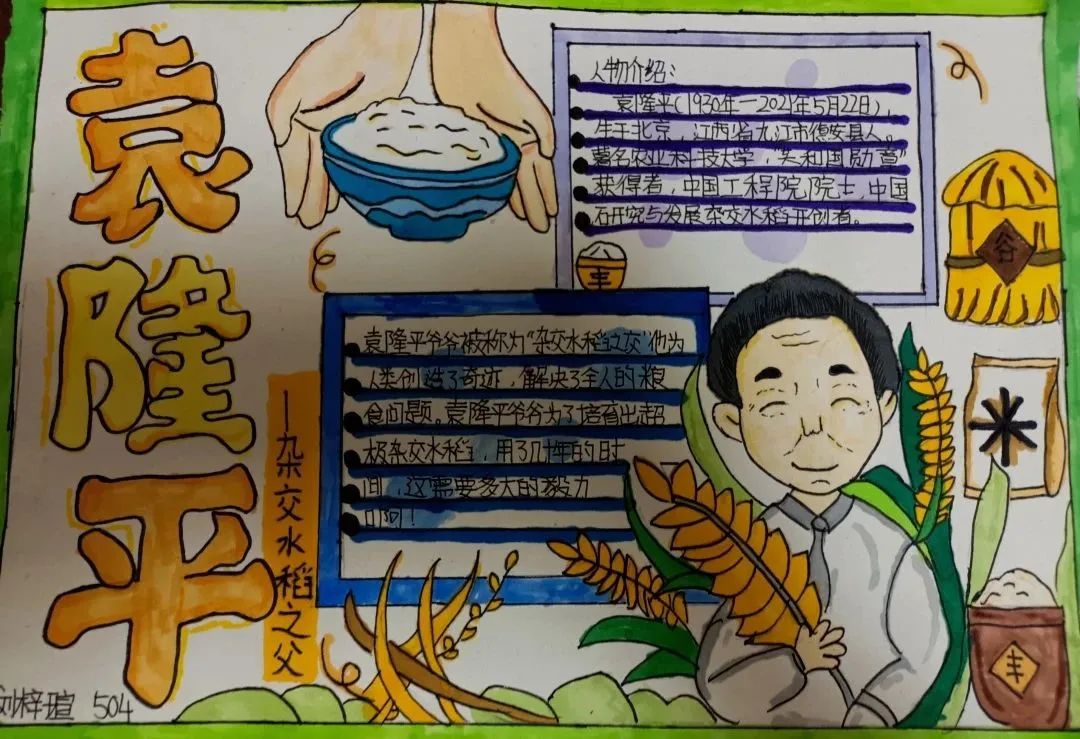 袁隆平
——杂交水稻之父
人物介绍：
袁隆平(1930年一2021年5月22日)，
生于北京，江西省九江市德安县人。
著名农业科技大学，"共和国勋章"
获得者，中国工程院院士，中国
研究与发展杂交水稻开创者。
谷
丰
袁隆平爷爷被称为"杂交水稻之父"他为
人类创造了奇迹，解决了全人的粮
食问题。袁隆平爷爷为了培育出超
极杂交水稻，用了几十年的时
间，这需要多大的毅力
啊！
米
丰
刘梓瑄 504